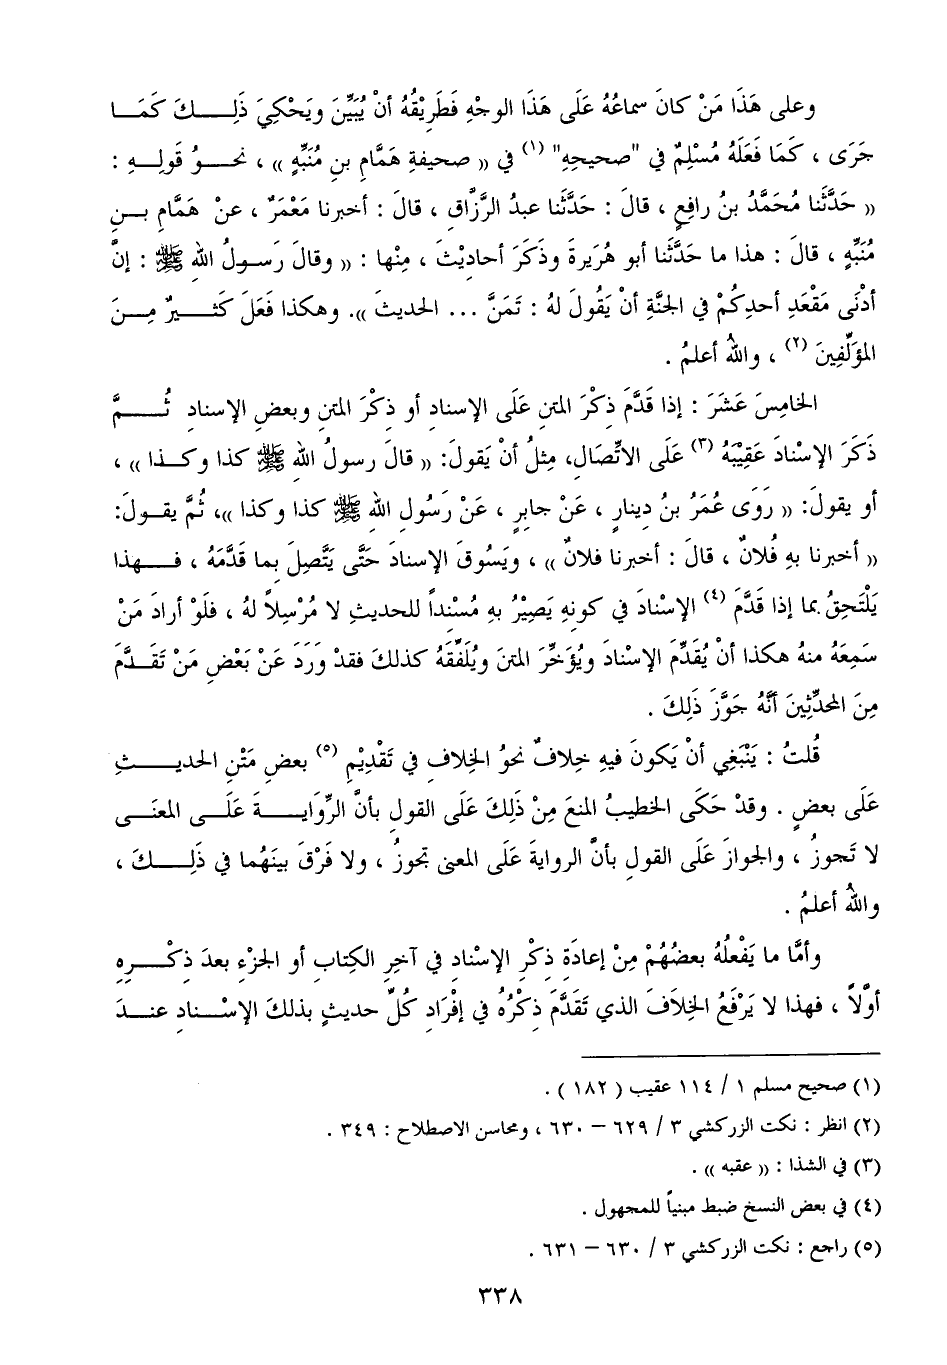 وعلى هَذَا مَنْ كانَ سماعُهُ عَلَى هَذَا الوجْهِ فَطَرِيْقُهُ أنْ يُبَيِّنَ ويَحْكِيَ ذَلِكَ كَمَا
جَرَى ، كَمَا فَعَلَهُ مُسْلِمٌ في "صحيحِهِ" (١) في (( صحيفةِ هَمَّامِ بنِ مُنَبِّهٍ )) ، نحوُ قَولِهِ :
(( حَدَّثَنا مُحَمَّدُ بنُ رافِعٍ ، قالَ : حَدَّثَنا عبدُ الرَّزَّاقِ ، قالَ : أخبرنا مَعْمَرٌ ، عنْ هَمَّامِ بنِ
مُنَبِّهٍ ، قالَ : هذا ما حَدَّثَنا أبو هُرَيرةَ وذَكَرَ أحاديْثَ ، مِنْها : (( وقالَ رَسولُ اللهِ ﷺ : إنَّ
أدْنَى مَقْعَدِ أحدِكُمْ في الجنَّةِ أنْ يَقُولَ لهُ : تَمَنَّ ... الحديثَ )). وهكذا فَعَلَ كَثيرٌ مِنَ
المؤَلِّفِينَ (٢) ، واللهُ أعلمُ .
الخامِسَ عَشَرَ : إذا قَدَّمَ ذِكْرَ المتنِ عَلَى الإسنادِ أو ذِكْرَ المتنِ وبعضِ الإسنادِ ثُمَّ
ذَكَرَ الإسْنادَ عَقِيْبَهُ (٣) عَلَى الاتِّصَالِ، مِثلُ أنْ يَقولَ: (( قالَ رسولُ اللهِ ﷺ كذا وكذا )) ،
أو يقولَ: (( رَوَى عُمَرُ بنُ دينارٍ ، عَنْ جابرٍ ، عَنْ رَسُولِ اللهِ ﷺ كذا وكذا ))، ثُمَّ يقولَ:
(( أخبرنا بهِ فُلانٌ ، قالَ : أخبرنا فلانٌ )) ، ويَسُوقَ الإسنادَ حَتَّى يَتَّصِلَ بما قَدَّمَهُ ، فهذا
يَلْتَحِقُ بما إذا قَدَّمَ (٤) الإسْنادَ في كونِهِ يَصِيْرُ بهِ مُسْنداً للحديثِ لا مُرْسِلاً لهُ ، فلَوْ أرادَ مَنْ
سَمِعَهُ منهُ هكذا أنْ يُقَدِّمَ الإسْنادَ ويُؤَخِّرَ المتنَ ويُلَفِّقَهُ كذلكَ فقدْ وَرَدَ عَنْ بَعْضِ مَنْ تَقَدَّمَ
مِنَ المحدِّثِينَ أنَّهُ جَوَّزَ ذَلِكَ .
قُلتُ : يَنْبَغِي أنْ يَكونَ فيهِ خِلافٌ نحوُ الخِلافِ في تَقْدِيْمِ (٥) بعضِ مَتْنِ الحديثِ
عَلَى بعضٍ . وقدْ حَكَى الخطيبُ المنعَ مِنْ ذَلِكَ عَلَى القولِ بأنَّ الرِّوَايةَ عَلَى المعنَى
لا تَجوزُ ، والجوازَ عَلَى القولِ بأنَّ الروايةَ عَلَى المعنى تجوزُ ، ولا فَرْقَ بينَهُما في ذَلِكَ ،
واللهُ أعلمُ .
وأمَّا ما يَفْعلُهُ بعضُهُمْ مِنْ إعادَةِ ذِكْرِ الإسْنادِ في آخِرِ الكِتابِ أو الجزْءِ بعدَ ذِكْرِهِ
أوَّلاً ، فهذا لا يَرْفَعُ الخِلَافَ الذي تَقَدَّمَ ذِكْرُهُ في إفْرَادِ كُلِّ حديثٍ بذلكَ الإسْنادِ عندَ
(١) صحيح مسلم ١ / ١١٤ عقيب ( ١٨٢ ) .
(٢) انظر : نكت الزركشي ٣ / ٦٢٩ – ٦٣٠ ، ومحاسن الاصطلاح : ٣٤٩ .
(٣) في الشذا : (( عقبه )) .
(٤) في بعض النسخ ضبط مبنياً للمجهول .
(٥) راجع : نكت الزركشي ٣ / ٦٣٠ – ٦٣١ .
٣٣٨